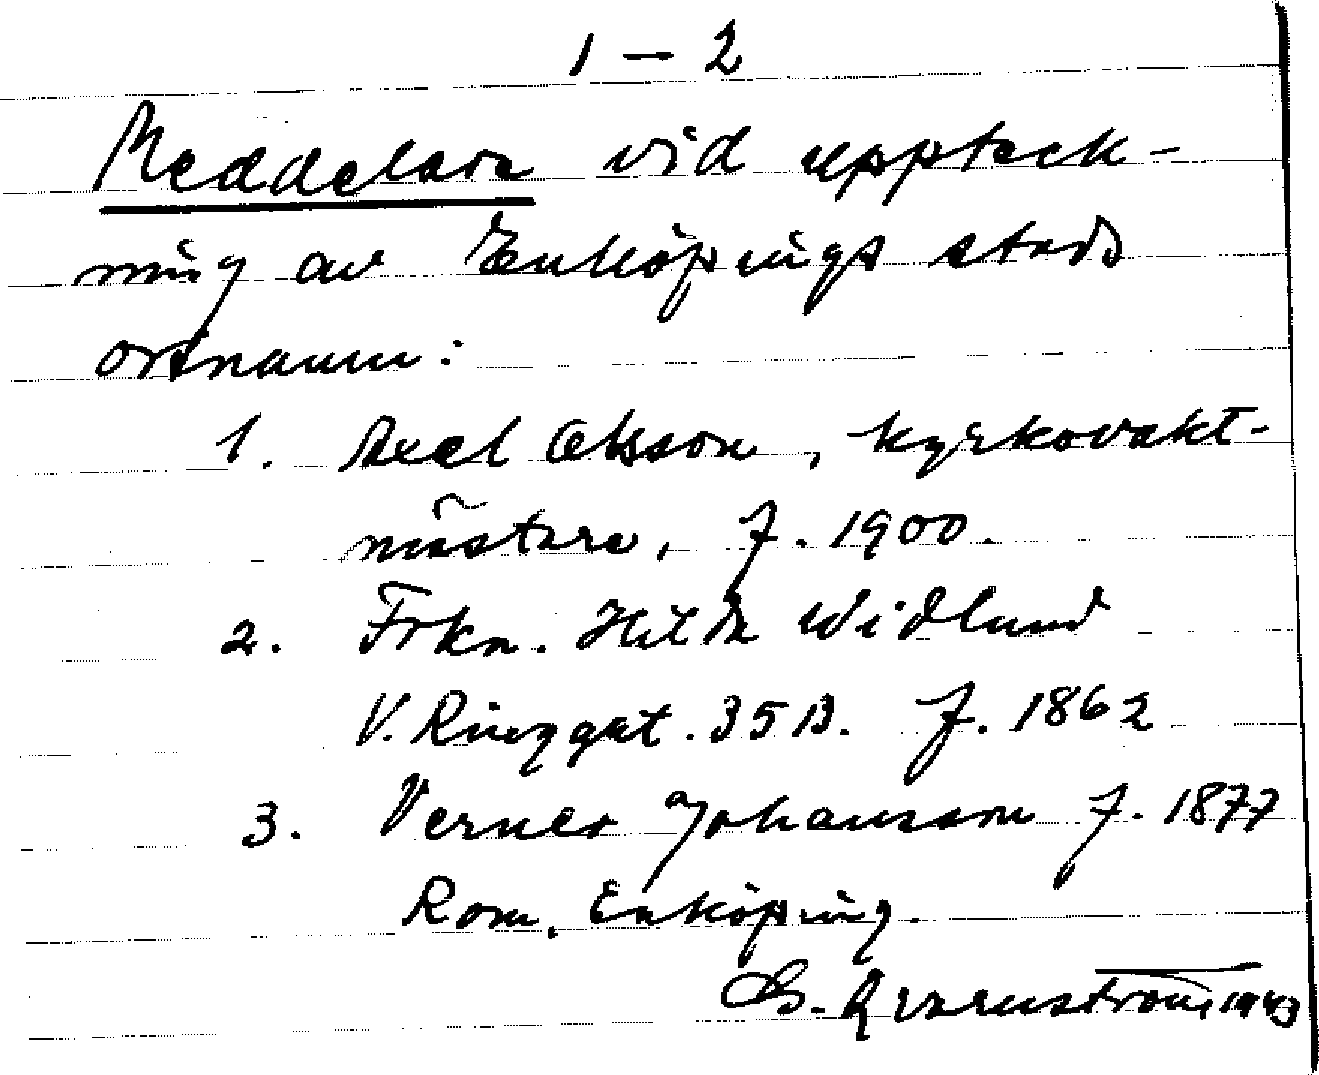 1 – 2
Meddelare vid uppteck-
ning av Enköpings stads
ortnamn:
1. Axel Olsson, kyrkovakt-
mästare, f. 1900.
2. Frkn. Hilda Widlund
V. Ringgat. 35 B. f. 1862
3. Verner Johansson f. 1877
Rom, Enköping.
G. Qvarnström 1943